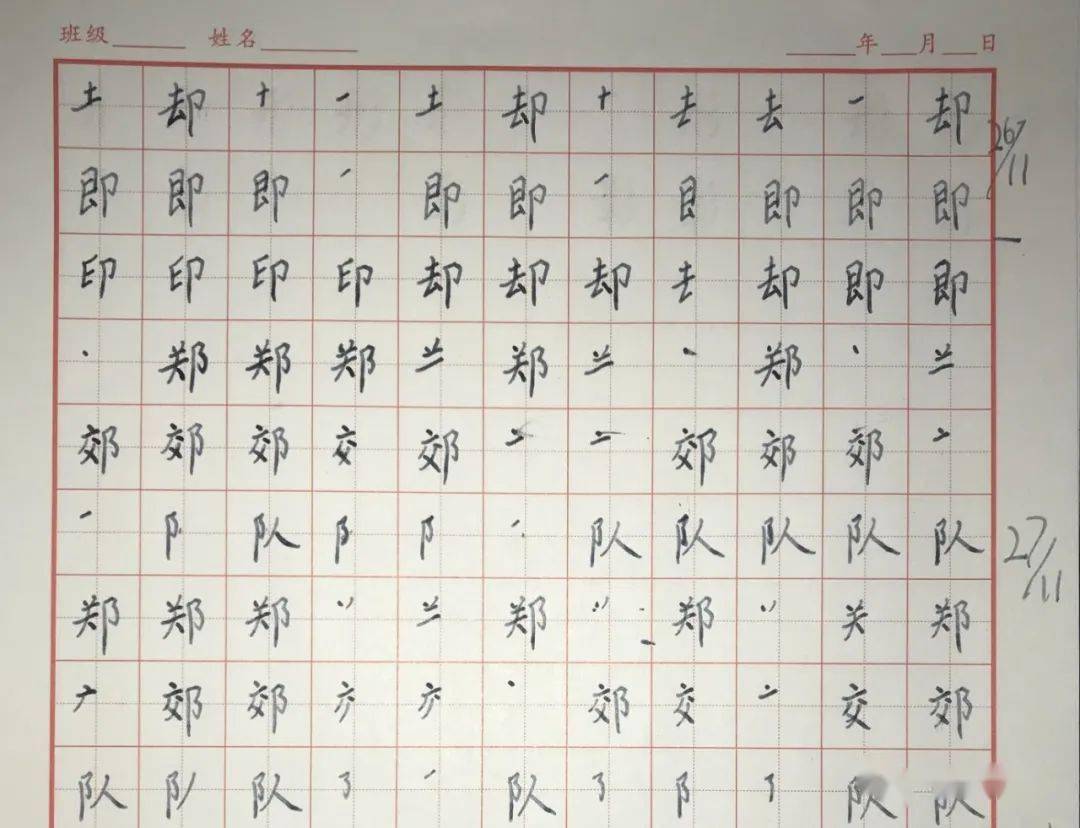 班级 姓名 年 月 日
土 却 十 一 土 却 十 去 去 一 却
即 即 即 即 即 即 即 即 即
印 印 印 印 却 却 却 去 却 即 即
郑 郑 郑 兰 郑 兰 郑 兰
郊 郊 郊 交 郊 二 郊 郊 郊
一 阝 队 阝 阝 队 队 队 队 队
郑 郑 郑 兰 郑 郑 关 郑
郊 郊 郊 交 交 郊
队 队 队 阝 队 队
26/11
27/11